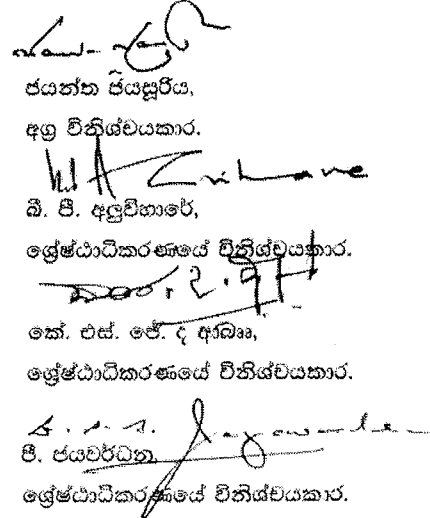 ජයන්ත ජයසූරිය,
අග්‍ර විනිශ්චයකාර.
බී. පී. අලුවිහාරේ,
ශ්‍රේෂ්ඨාධිකරණයේ විනිශ්චයකාර.
කේ. එස්. ජේ. ද ආබෲ,
ශ්‍රේෂ්ඨාධිකරණයේ විනිශ්චයකාර.
පී. ජයවර්ධන,
ශ්‍රේෂ්ඨාධිකරණයේ විනිශ්චයකාර.